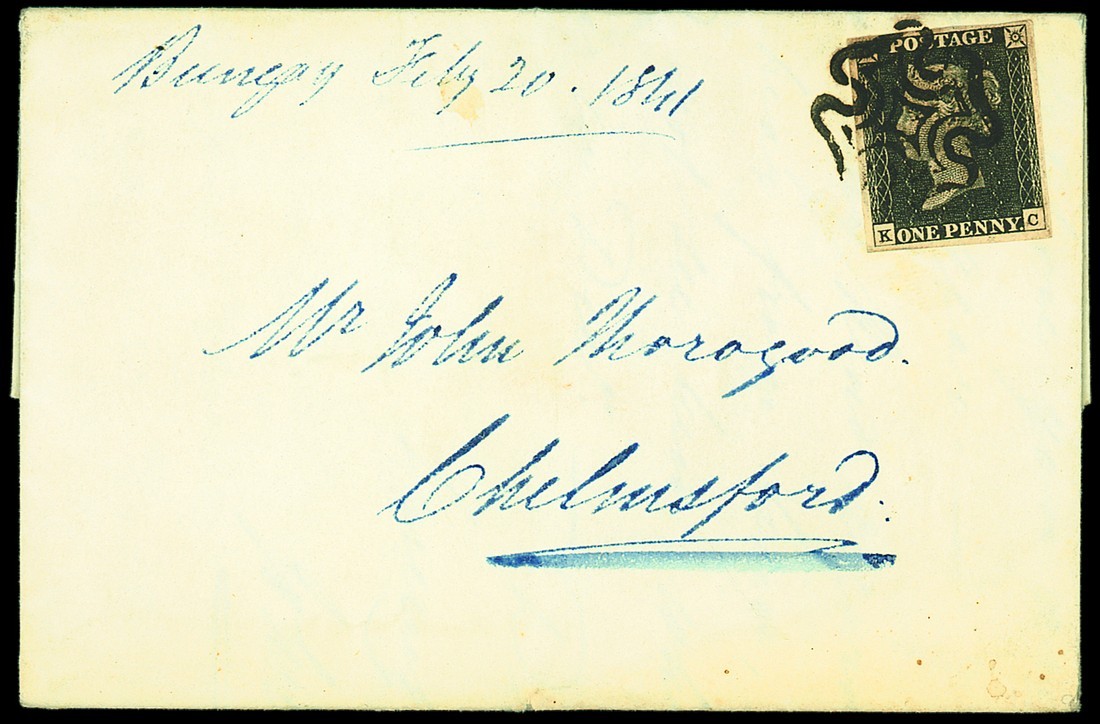 Bungay Feby 20. 1841
POSTAGE
K ONE PENNY. C
Mr John Thorogood.
Chelmsford.